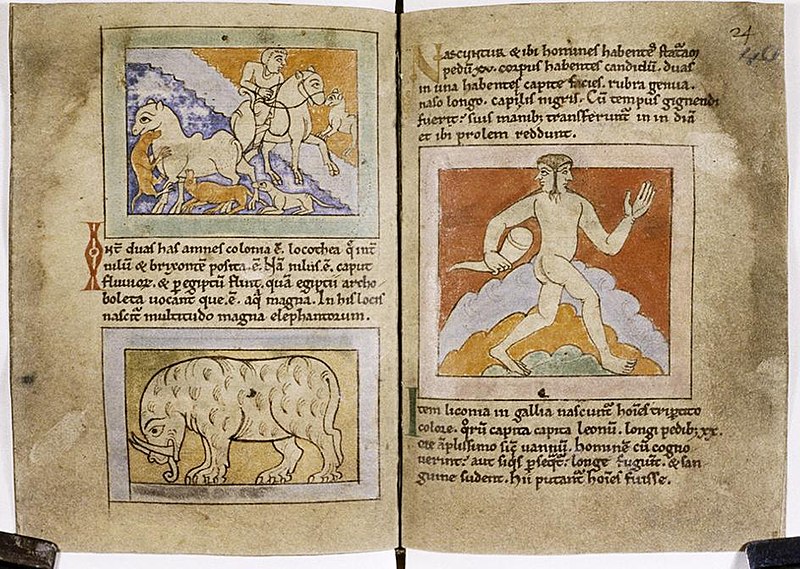 Int̄ duas has amnes colonia ē. locothea q̄ int̄
nilū & brixontē posita ē. Nā nilus ē. caput
fluuioꝝ. & p egiptū fluit, quā egiptii archo
boleta uocant que. ē. aq̄ magna. In his locis
nascit̄ multitudo magna elephantorum.
24
Nascuntur & ibi homines habentes statᷓ
pedū xv. corpus habentes candidū. duas
in una habentes capite facies. rubra genua.
naso longo. capilis nigris. Cū tempus gignendi
fuerit. suis manibꝫ transferunt̄ in in diā
et ibi prolem reddunt.
Item liconia in gallia nascunt̄ hoīes tripᷓtito
colore. qͦrū capita capita leonū. longi pedibꝫ xx.
ore āplissimo sic̄ uannū. hominē cū cogno
uerint. aut siqͥs pseqͣt̄. longe fugiunt̄. & san
guine sudent. Hii putant̄ hoīes fuisse.